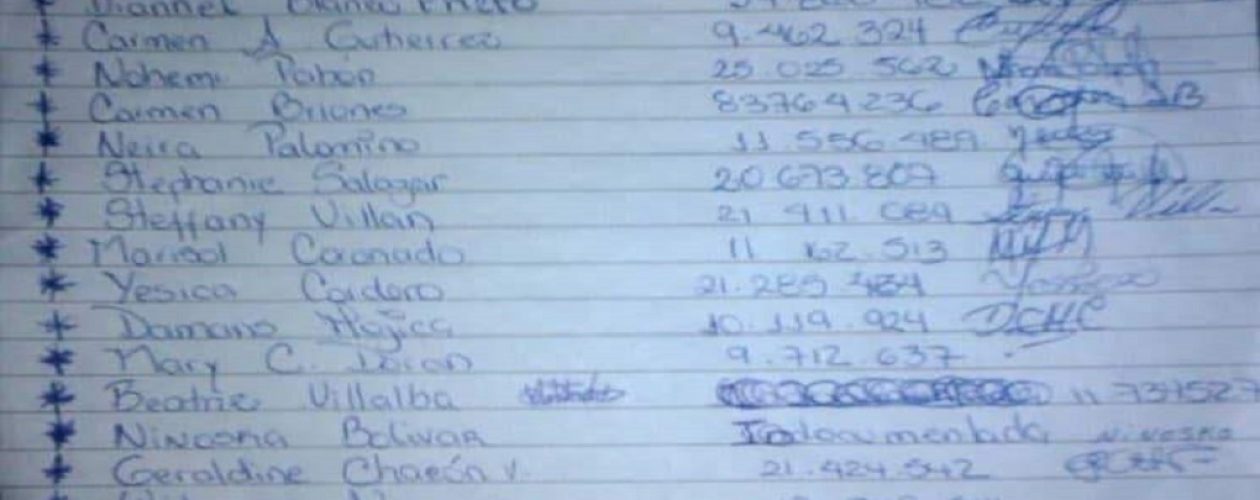 * Carmen A Gutierrez 9.462.324
* Nohemi Pabon 25.025.562
* Carmen Briones 83764236
* Neira Palomino 11.556.489
* Stephanie Salazar 20673.807
* Steffany Villan 21 911 089
* Marisol Coronado 11 162.513
* Yesica Cordero 21.285 484
* Damaris Mojica 10.119.924 DCMC
* Mary C. 9.712.637
* Beatriz Villalba 11 731523
* Ninoska Bolivar Indocumentada Ninoska
* Geraldine Chacón V. 21.424.542